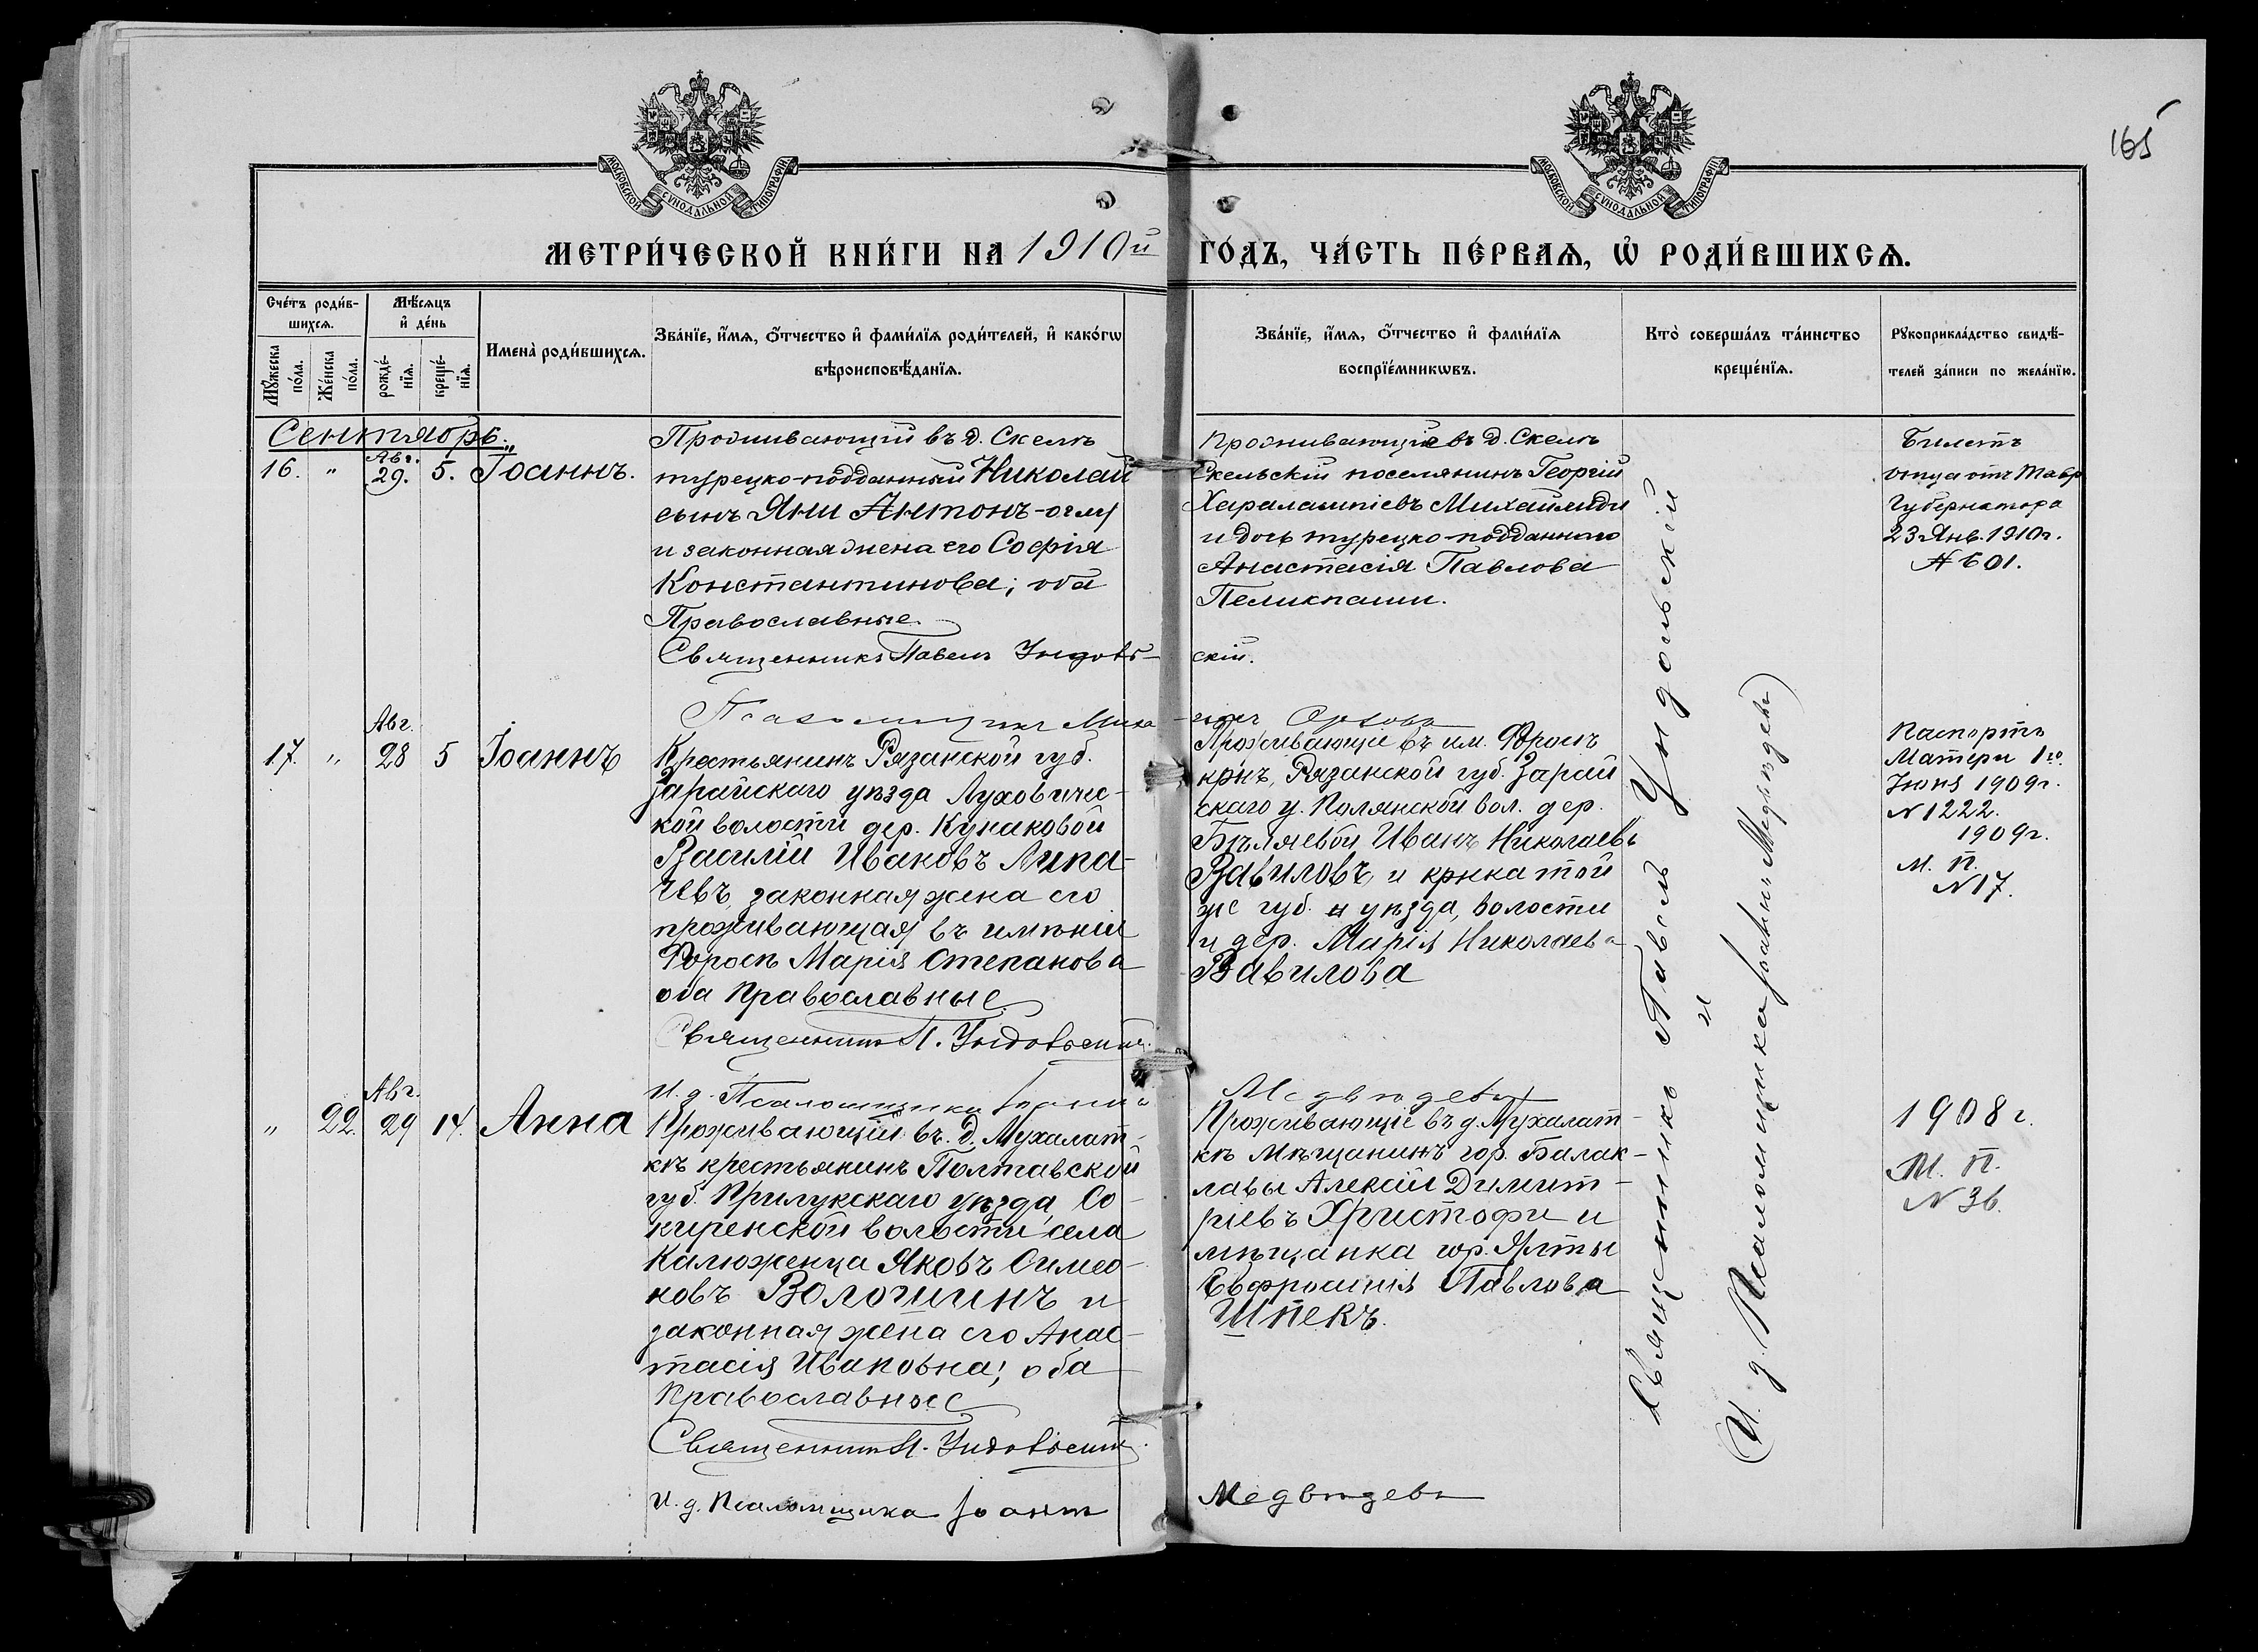 165
МОСКОВСКОЙ СѴНОДАЛЬНОЙ ТИПОГРАФІИ
МОСКОВСКОЙ СѴНОДАЛЬНОЙ ТИПОГРАФІИ
МЕТРИ́ЧЕСКОЙ КНИ́ГИ НА 1910й ГО́ДЪ, ЧА́СТЬ ПЕ́РВАѦ, Ѡ҆ РОДИ́ВШИХСѦ.
Сче́тъ роди́в-
шихсѧ.
Мꙋ́жеска по́ла.
Же́нска по́ла.
Мѣ́сѧцъ
и҆ де́нь
рожде́-
нїѧ.
креще́-
нїѧ.
Имена̀ роди́вшихсѧ.
Зва́нїе, и҆́мѧ, ѻ҆́тчество и҆ фами́лїѧ роди́телей, и҆ како́гѡ
вѣроисповѣ́данїѧ.
Зва́нїе, и҆́мѧ, ѻ҆́тчество и҆ фами́лїѧ
воспрїе́мникѡвъ.
Кто̀ соверша́лъ та́инство
креще́нїѧ.
Рꙋкоприкла́дство свидѣ́-
телей за́писи по жела́нїю.
Сентябрь.
16. " Авг. 29. 5. Іоаннъ.
Проживающій въ д. Скелѣ
турецко-подданный Николай
сынъ Яни Антонъ-оглу
и законная жена его Софія
Константинова; оба
Православные.
Священникъ Павелъ Ундоль-
скій.
Проживающіе въ д. Скелѣ
Скельскій поселянинъ Георгій
Харалампіевъ Михаилиди
и дочь турецко-подданного
Анастасія Павлова
Пеликпаши.
Билетъ
отца отъ Тавр.
Губернатора
23 Янв. 1910г.
№601.
17. " Авг. 28 5 Іоаннъ
Крестьянинъ Рязанской губ.
Зарайскаго уѣзда Луховичес-
кой волости дер. Кунаковой
Василій Ивановъ Липа-
чевъ, законная жена его
проживающая въ имѣніи
Форосъ Марія Степанова
оба Православные
Священникъ П. Ундольскій.
И. д. Псаломщика Іоаннъ
Медвѣдевъ
Проживающіе въ им. Форосъ
кр-нъ, Рязанской губ. Зарай
скаго у. Полянской вол. дер.
Бѣляевой Иванъ Николаевъ
Вавиловъ и кр-нка той
же губ. и уѣзда, волости
и дер. Марія Николаева
Вавилова
Паспортъ
Матери 1го
Іюня 1909г.
N 1222.
1909г.
М. П.
N 17.
" 22. Авг. 29 14. Анна
Проживающій въ. д. Мухалат-
кѣ крестьянинъ Полтавской
губ. Прилукскаго уѣзда, Со-
киренской волости села
Калюженца Яковъ Симео-
новъ Волошинъ и
законная жена его Анас-
тасія Ивановна; оба
Православные
Священникъ П. Ундольскій.
И. д. Псаломщика Іоаннъ
Медвѣдевъ
Проживающіе въ д. Мухалат-
кѣ Мѣщанинъ гор. Балак-
лавы Алексій Димит-
ріевъ Христофи и
мѣщанка гор. Ялты
Евфросинія Павлова
Шпекъ.
1908г.
М. П.
N 36.
Священникъ Павелъ Ундольскій
и
(И. д. Псаломщика Іоаннъ Медвѣдевъ)